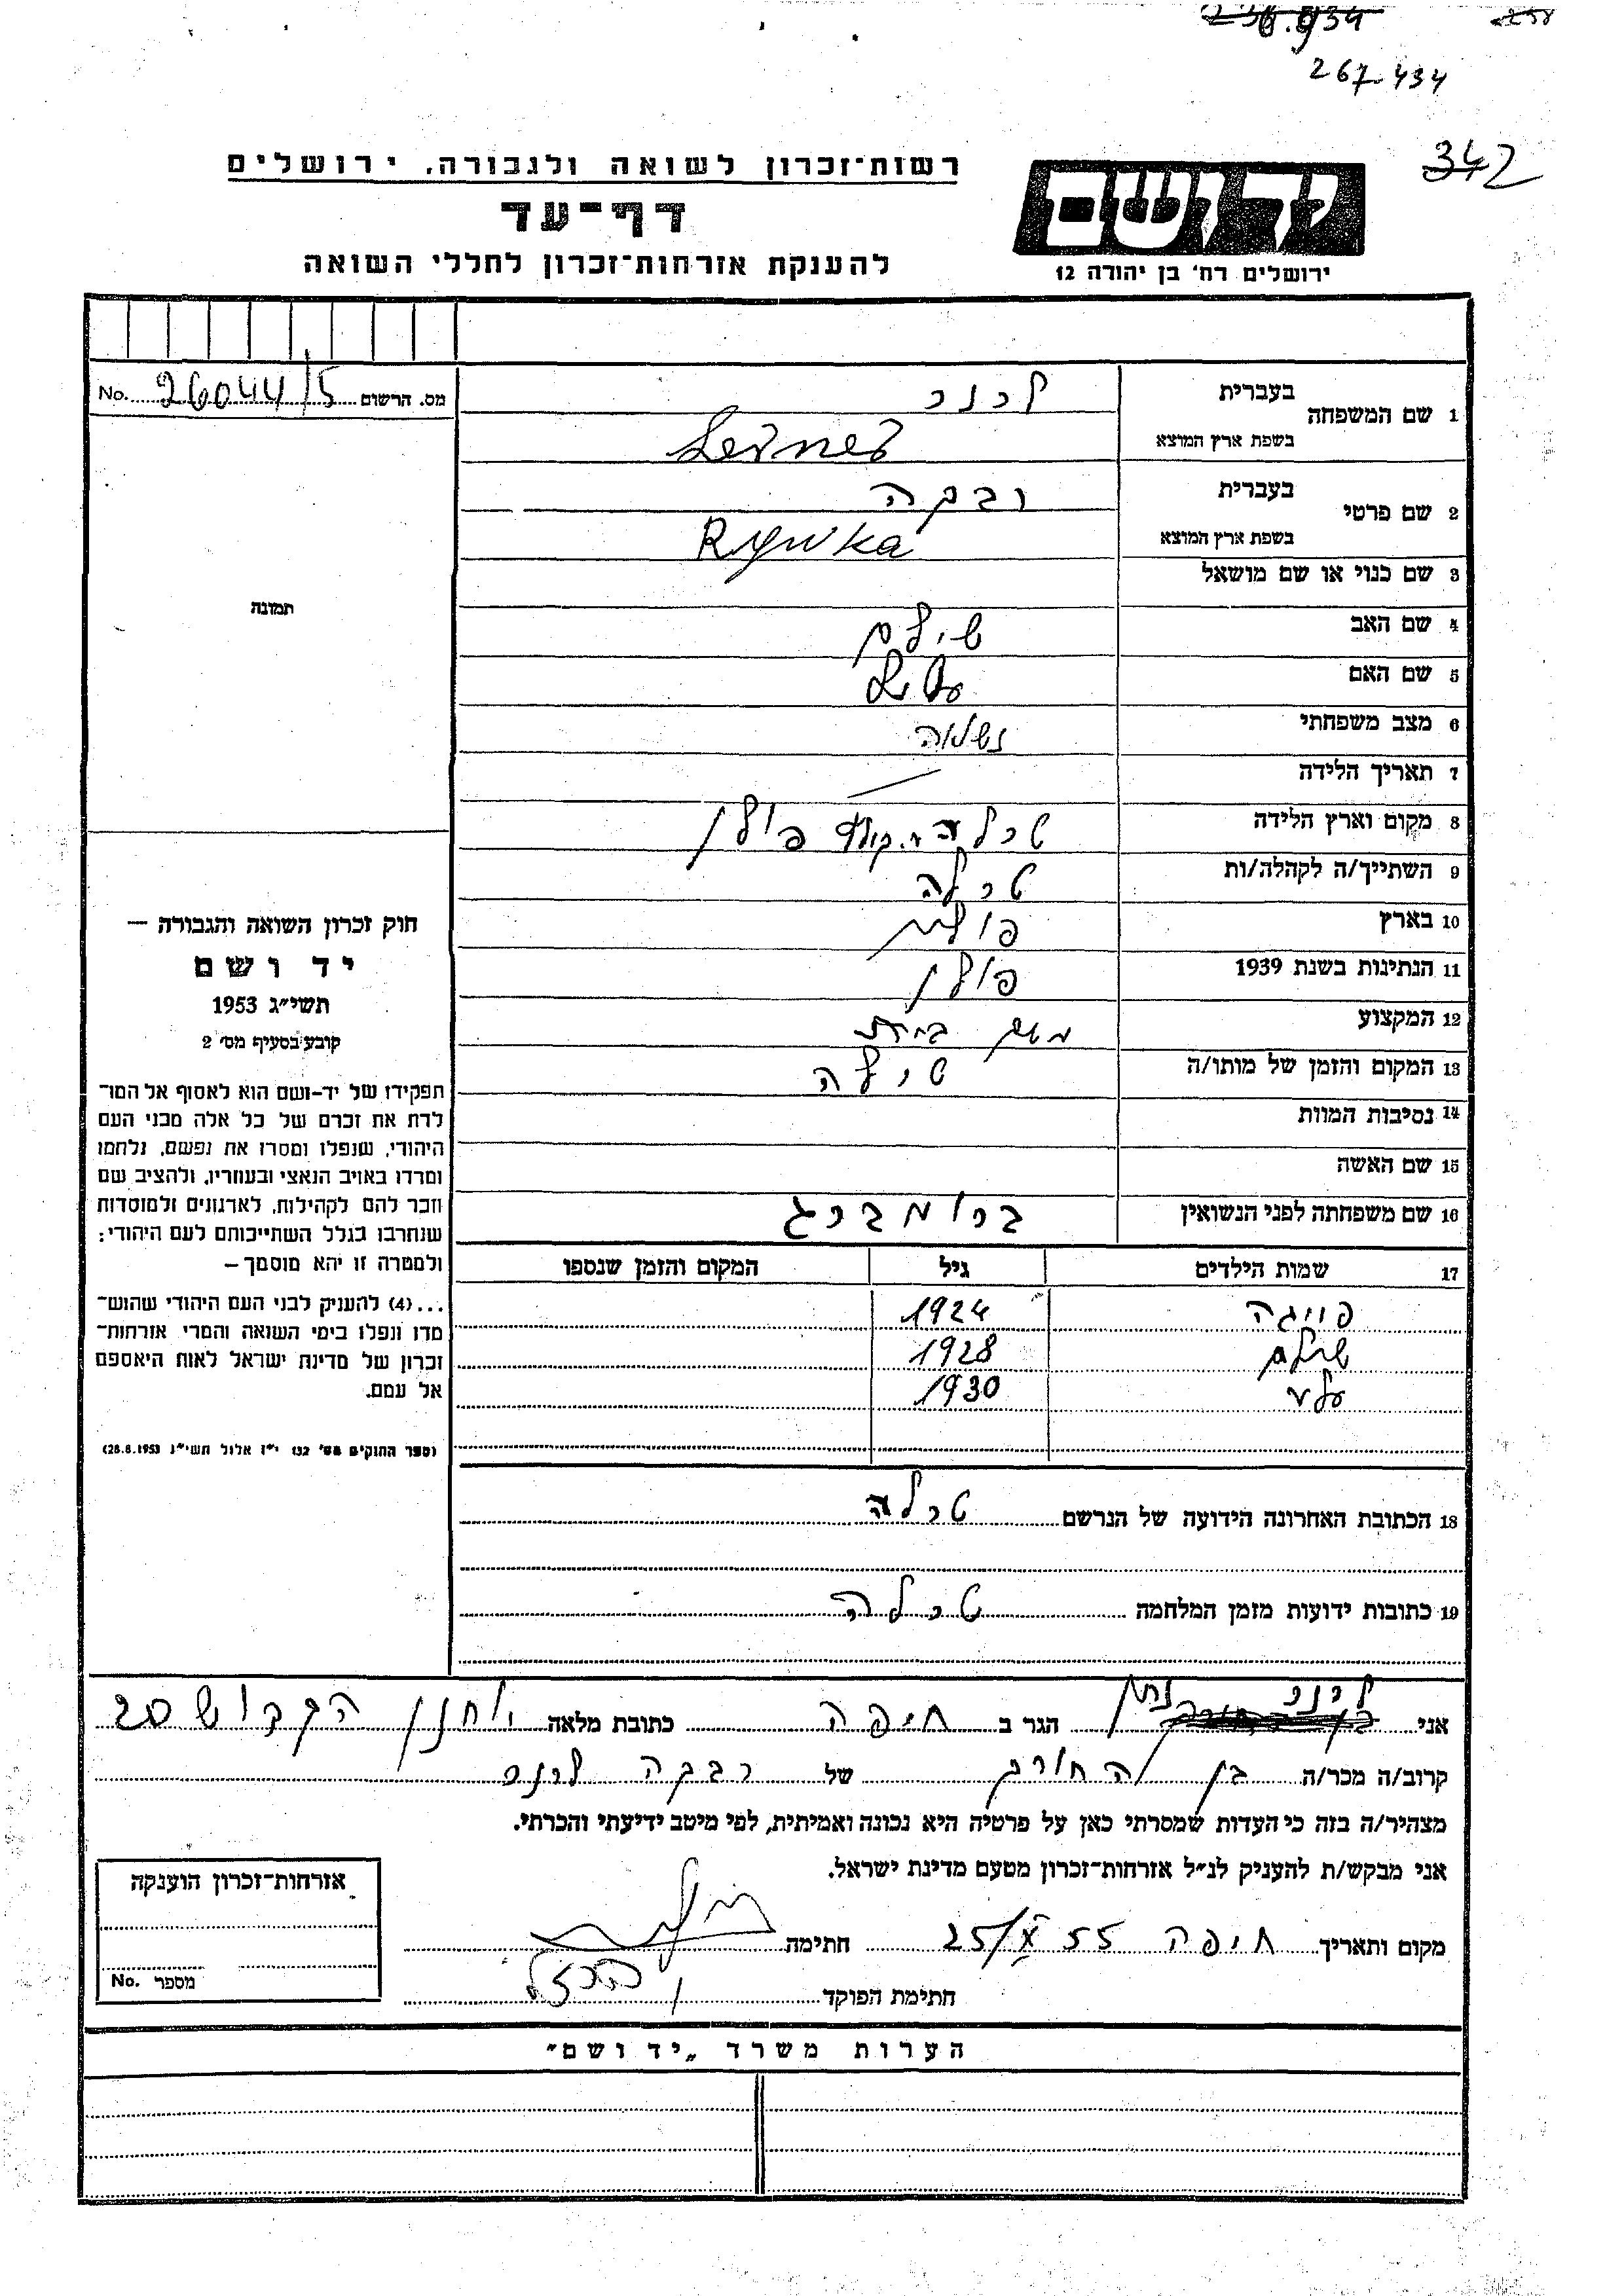 267.434
342
רשות־זכרון לשואה ולגבורה, ירושלים
דף־עד
להענקת אזרחות־זכרון לחללי השואה
יד ושם
ירושלים רח' בן יהודה 12
מס. הרשום 26044/5 No.
1 שם המשפחה
בעברית לרנר
בשפת ארץ המוצא Lerner
2 שם פרטי
בעברית רבקה
בשפת ארץ המוצא Rywka
3 שם כנוי או שם מושאל
4 שם האב שילם
5 שם האם
6 מצב משפחתי נשואה
7 תאריך הלידה —
8 מקום וארץ הלידה פולין
9 השתייך/ה לקהלה/ות טרלה
10 בארץ פולין
11 הנתינות בשנת 1939 פולין
12 המקצוע משק בית
13 המקום והזמן של מותו/ה
14 נסיבות המוות
15 שם האשה
16 שם משפחתה לפני הנשואין ברומברג
17 שמות הילדים גיל המקום והזמן שנספו
פייגה 1924
1928
1930
18 הכתובת האחרונה הידועה של הנרשם טרלה
19 כתובות ידועות מזמן המלחמה טרלה
תמונה
חוק זכרון השואה והגבורה —
יד ושם
תשי״ג 1953
קובע בסעיף מס' 2
תפקידו של יד-ושם הוא לאסוף אל המו־
לדת את זכרם של כל אלה מבני העם
היהודי, שנפלו ומסרו את נפשם, נלחמו
ומרדו באויב הנאצי ובעוזריו, ולהציב שם
וזכר להם לקהילות, לארגונים ולמוסדות
שנחרבו בגלל השתייכותם לעם היהודי;
ולמטרה זו יהא מוסמך —
...(4) להעניק לבני העם היהודי שהוש־
מדו ונפלו בימי השואה והמרי אזרחות־
זכרון של מדינת ישראל לאות היאספם
אל עמם.
(ספר החוקים מס' 132 י״ז אלול תשי״ג 28.8.1953)
אני לרנר נתן הגר ב חיפה כתובת מלאה יוחנן הקדוש 20
קרוב/ה מכר/ה בן של רבקה לרנר
מצהיר/ה בזה כי העדות שמסרתי כאן על פרטיה היא נכונה ואמיתית, לפי מיטב ידיעתי והכרתי.
אני מבקש/ת להעניק לנ״ל אזרחות־זכרון מטעם מדינת ישראל.
מקום ותאריך חיפה 25/X 55 חתימה
חתימת הפוקד
אזרחות־זכרון הוענקה
מספר No.
הערות משרד „יד ושם״